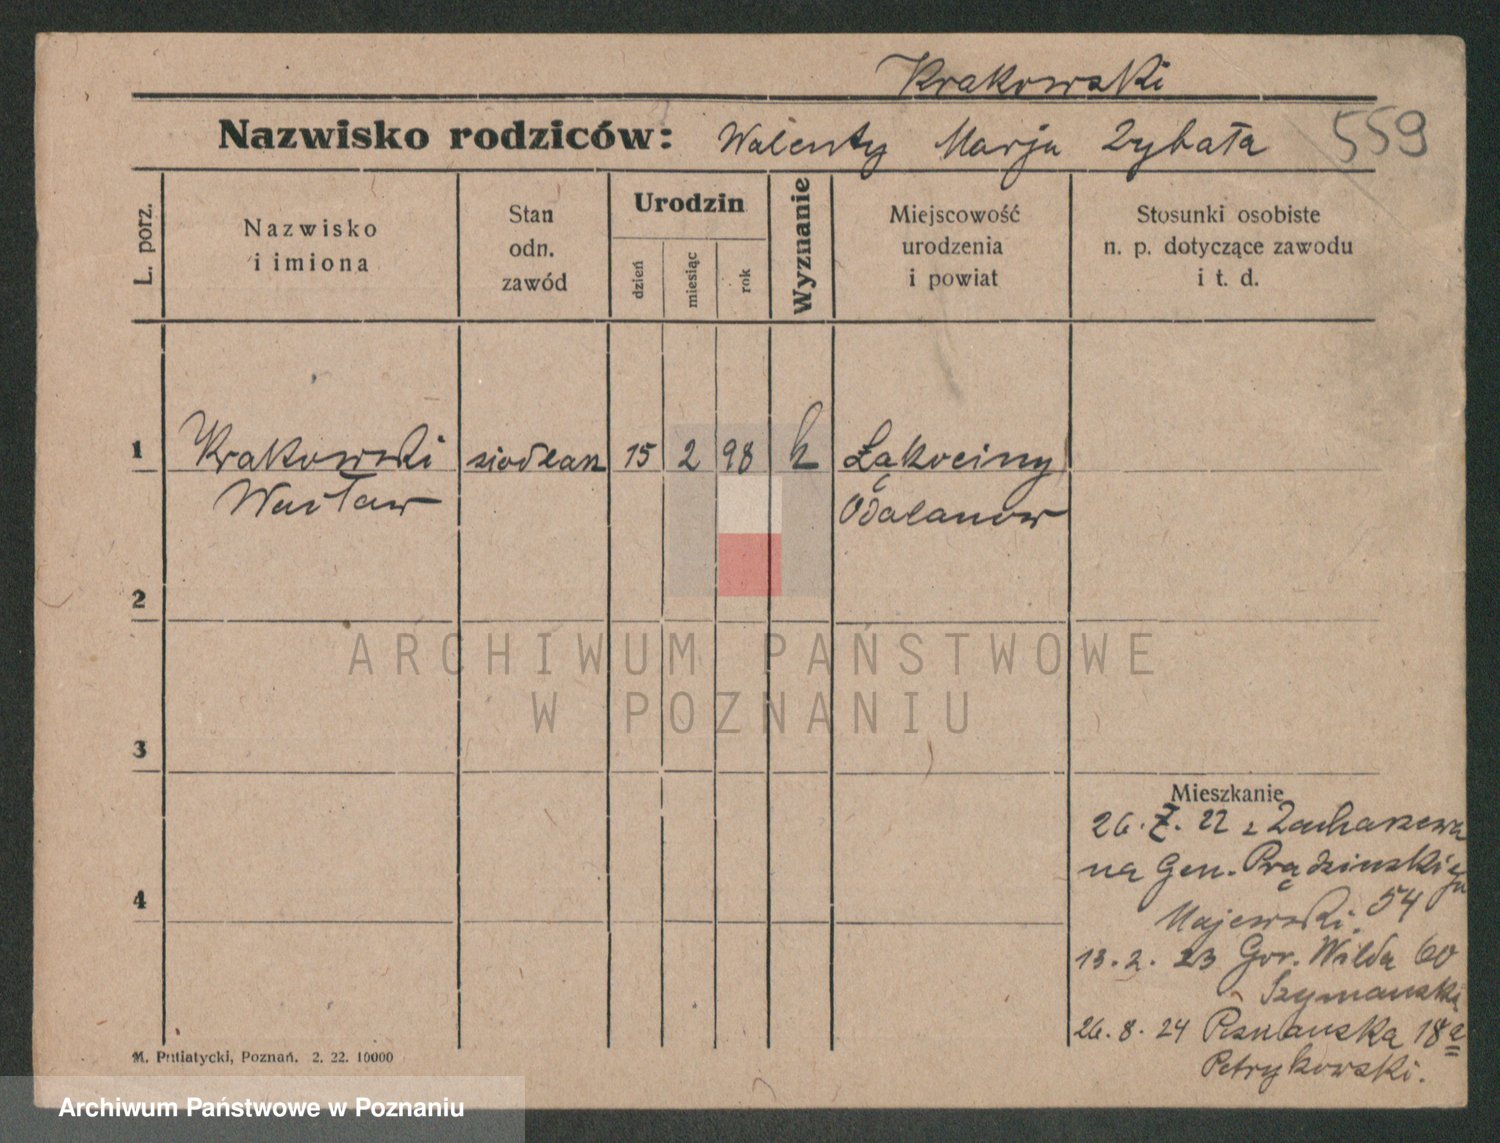 Krakowski
Nazwisko rodziców: Walenty Marja Zybała 559
L. porz.
Nazwisko
i imiona
Stan
odn.
zawód
Urodzin
dzień
miesiąc
rok
Wyznanie
Miejscowość
urodzenia
i powiat
Stosunki osobiste
n. p. dotyczące zawodu
i t. d.
1 Krakowski siodlarz 15 2 98 k Łąkociny
Wacław Odalanow
2
3
4
Mieszkanie
26. 7. 22 z Zacharzewa
na Gen. Prądzinskiego
Majewski. 54
13. 2. 23 Gor. Wilda 60
Szymanski
26. 8. 24 Poznanska 18a
Petrykowski.
M. Putiatycki, Poznań. 2. 22. 10000
ARCHIWUM PAŃSTWOWE
W POZNANIU
Archiwum Państwowe w Poznaniu